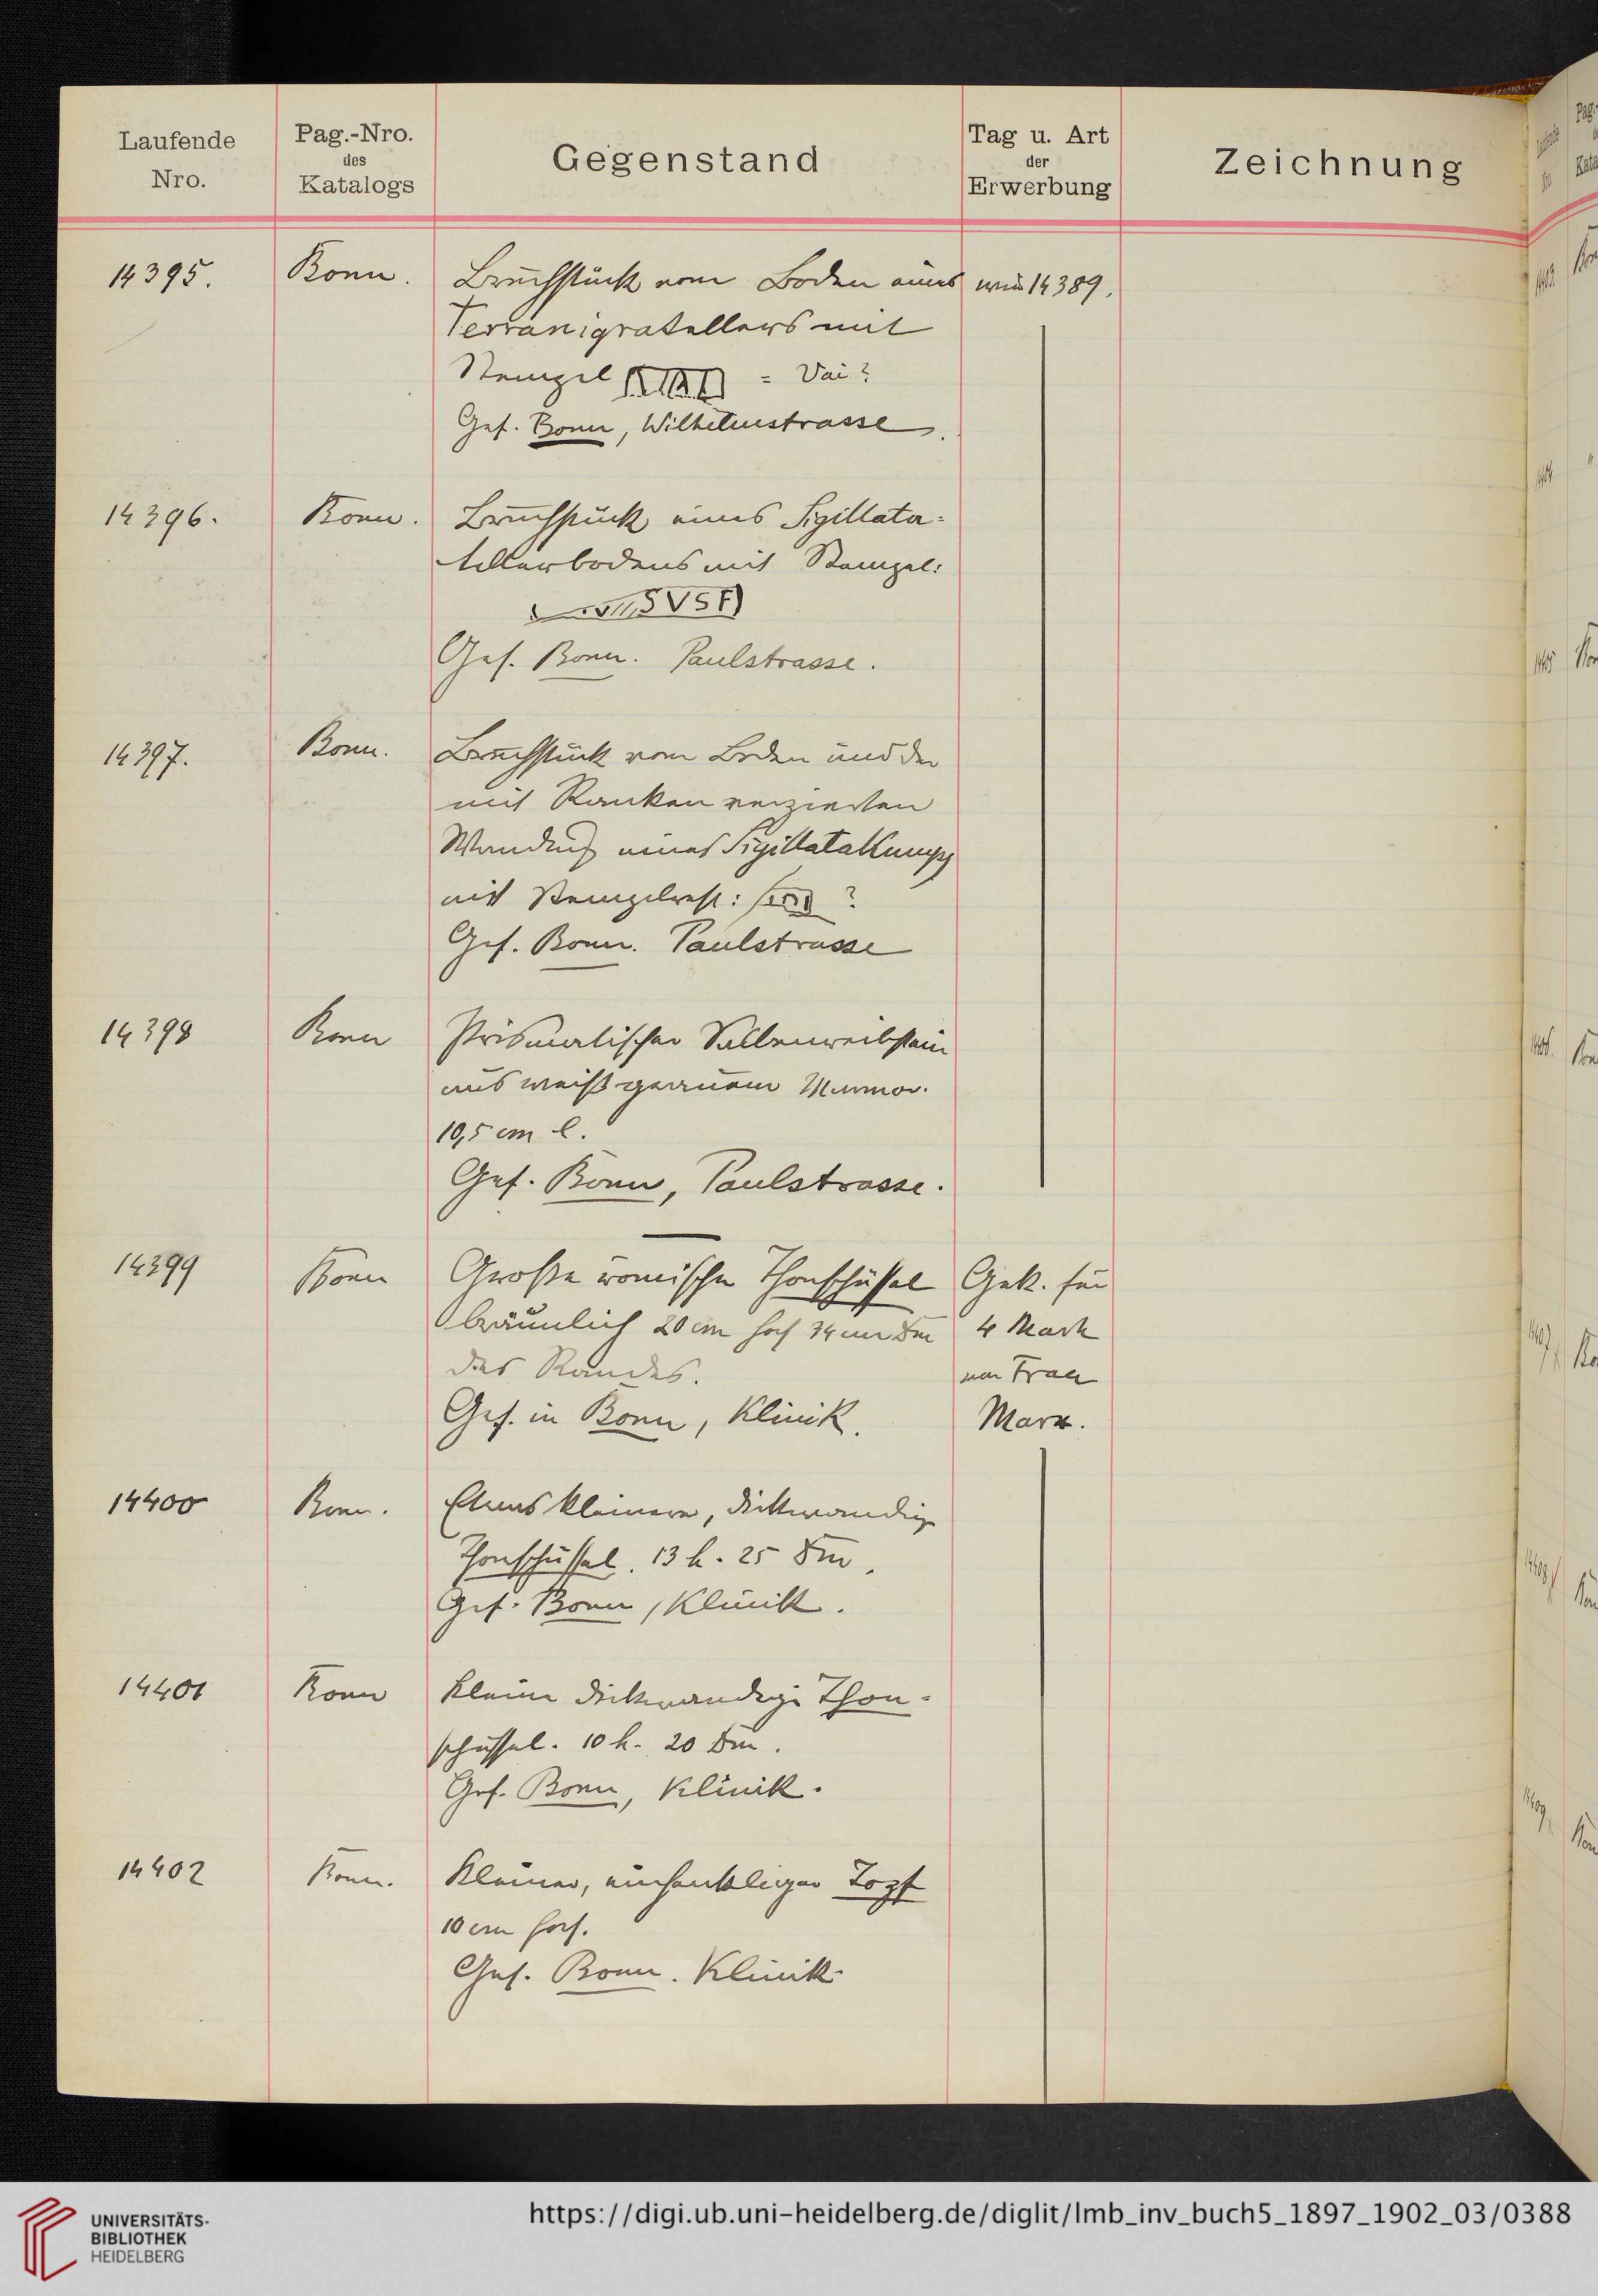 Laufende Nro.
Pag.-Nro. des Katalogs
Gegenstand
Tag u. Art der Erwerbung
Zeichnung
14395. Bonn. Bruchstück vom Boden eines wie 14389.
Terranigratellers mit
Stempel = Vai?
Gef. Bonn, Wilhelmstrasse.
14396. Bonn. Bruchstück eines Sigillata-
tellerbodens mit Stempel:
SVSF
Gef. Bonn. Paulstrasse.
14397. Bonn. Bruchstück vom Boden und der
mit Ranken verzierten
Wandung eines Sigillatakumps
mit Stempelrest: ?
Gef. Bonn. Paulstrasse
14398 Bonn Prismatischer Salbenreibstein
aus weißgrauem Marmor.
10,5 cm l.
Gef. Bonn, Paulstrasse.
14399 Bonn Große römische Thonschüssel Gek. für
bräunlich 20 cm hoch 34 cm Dm 4 Mark
des Randes. von Frau
Gef. in Bonn, Klinik. Marx.
14400 Bonn. Etwas kleinere, dickwandige
Thonschüssel. 13 h. 25 Dm.
Gef. Bonn, Klinik.
14401 Bonn Kleine dickwandige Thon-
schüssel. 10 h. 20 Dm.
Gef. Bonn, Klinik.
14402 Bonn. Kleiner, einhenkliger Topf
10 cm hoch.
Gef. Bonn. Klinik.
UNIVERSITÄTS-
BIBLIOTHEK
HEIDELBERG
https://digi.ub.uni-heidelberg.de/diglit/lmb_inv_buch5_1897_1902_03/0388